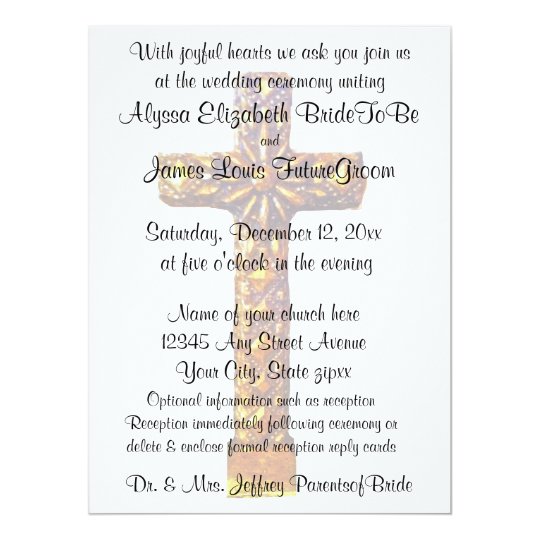 With joyful hearts we ask you join us
at the wedding ceremony uniting
Alyssa Elizabeth BrideToBe
and
James Louis FutureGroom
Saturday, December 12, 20xx
at five o'clock in the evening
Name of your church here
12345 Any Street Avenue
Your City, State zipxx
Optional information such as reception
Reception immediately following ceremony or
delete & enclose formal reception reply cards
Dr. & Mrs. Jeffrey ParentsofBride